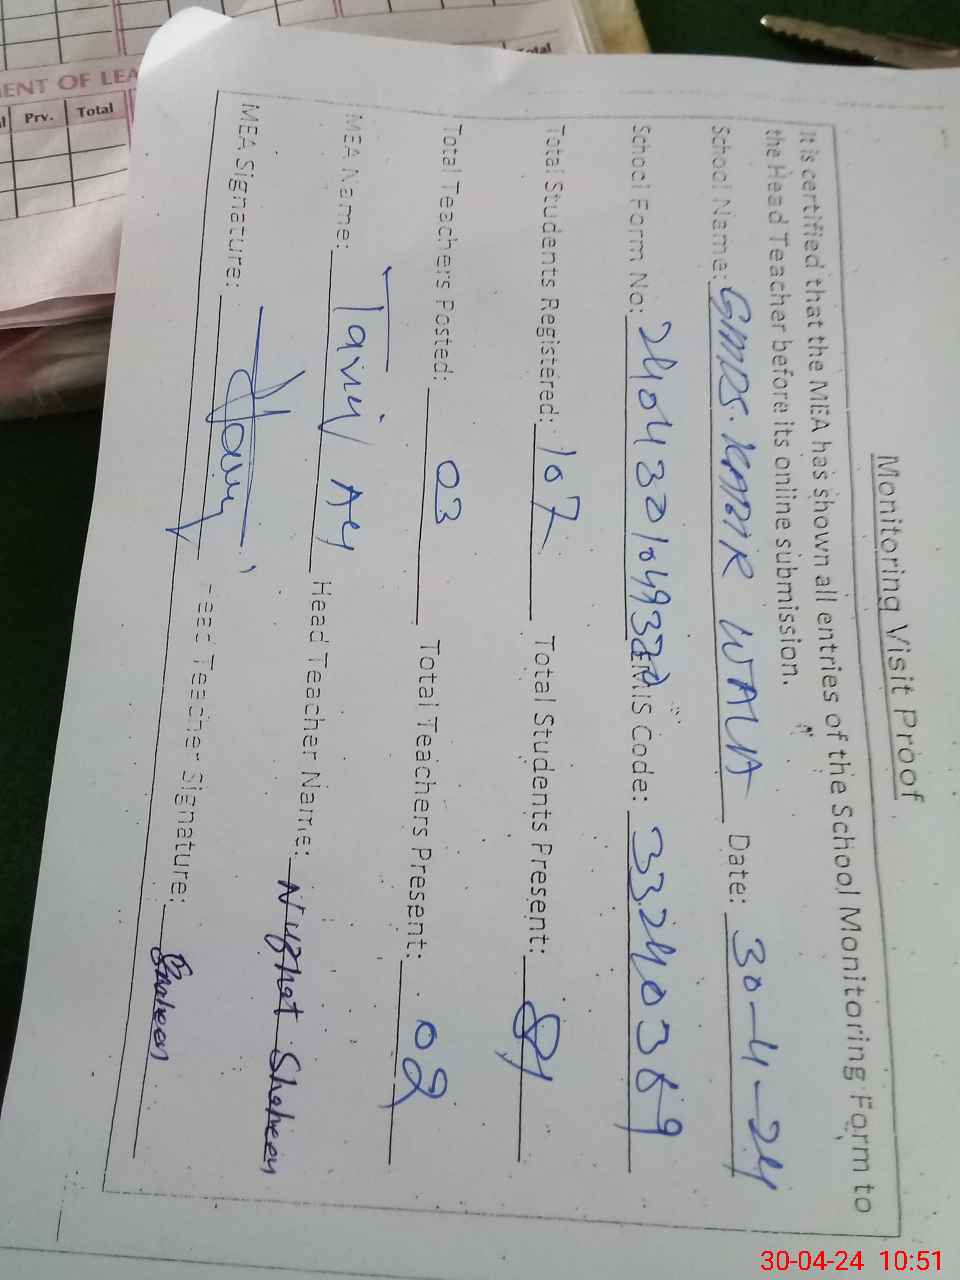 Monitoring Visit Proof
It is certified that the MEA has shown all entries of the School Monitoring Form to
the Head Teacher before its online submission.
School Name: GMPS. KADIR WALA Date: 30-4-24
School Form No: EMIS Code: 33240369
Total Students Registered: 107 Total Students Present: 81
Total Teachers Posted: 03 Total Teachers Present: 02
MEA Name: Head Teacher Name: Nuzhat Shaheen
MEA Signature: Head Teacher Signature: Shaheen
ENT OF LEA
Prv. Total
Total
30-04-24 10:51